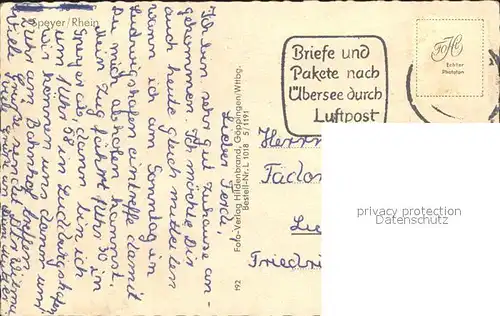 Speyer/Rhein
Lieber Ferdi,
Ich bin sehr gut Zuhause an-
gekommen. Ich möchte Dir
auch heute gleich mitteilen
wann ich am Sonntag in
Ludwigshafen eintreffe damit
Du mich abholen kannst.
Mein Zug fährt 1 Uhr 30 in
Speyer ab, dann bin ich
um 1 Uhr 58 in Ludwigshafen
Wir können uns dann um
2 Uhr am Bahnhof treffen.
Viele Grüße sendet Dir
Foto-Verlag Hildenbrand, Göppingen/Wttbg.
Bestell-Nr. L 1018 5/1191
192
Briefe und
Pakete nach
Übersee durch
Luftpost
FoHi
Echter
Phototon
Herrn
Friedri
privacy protection
Datenschutz